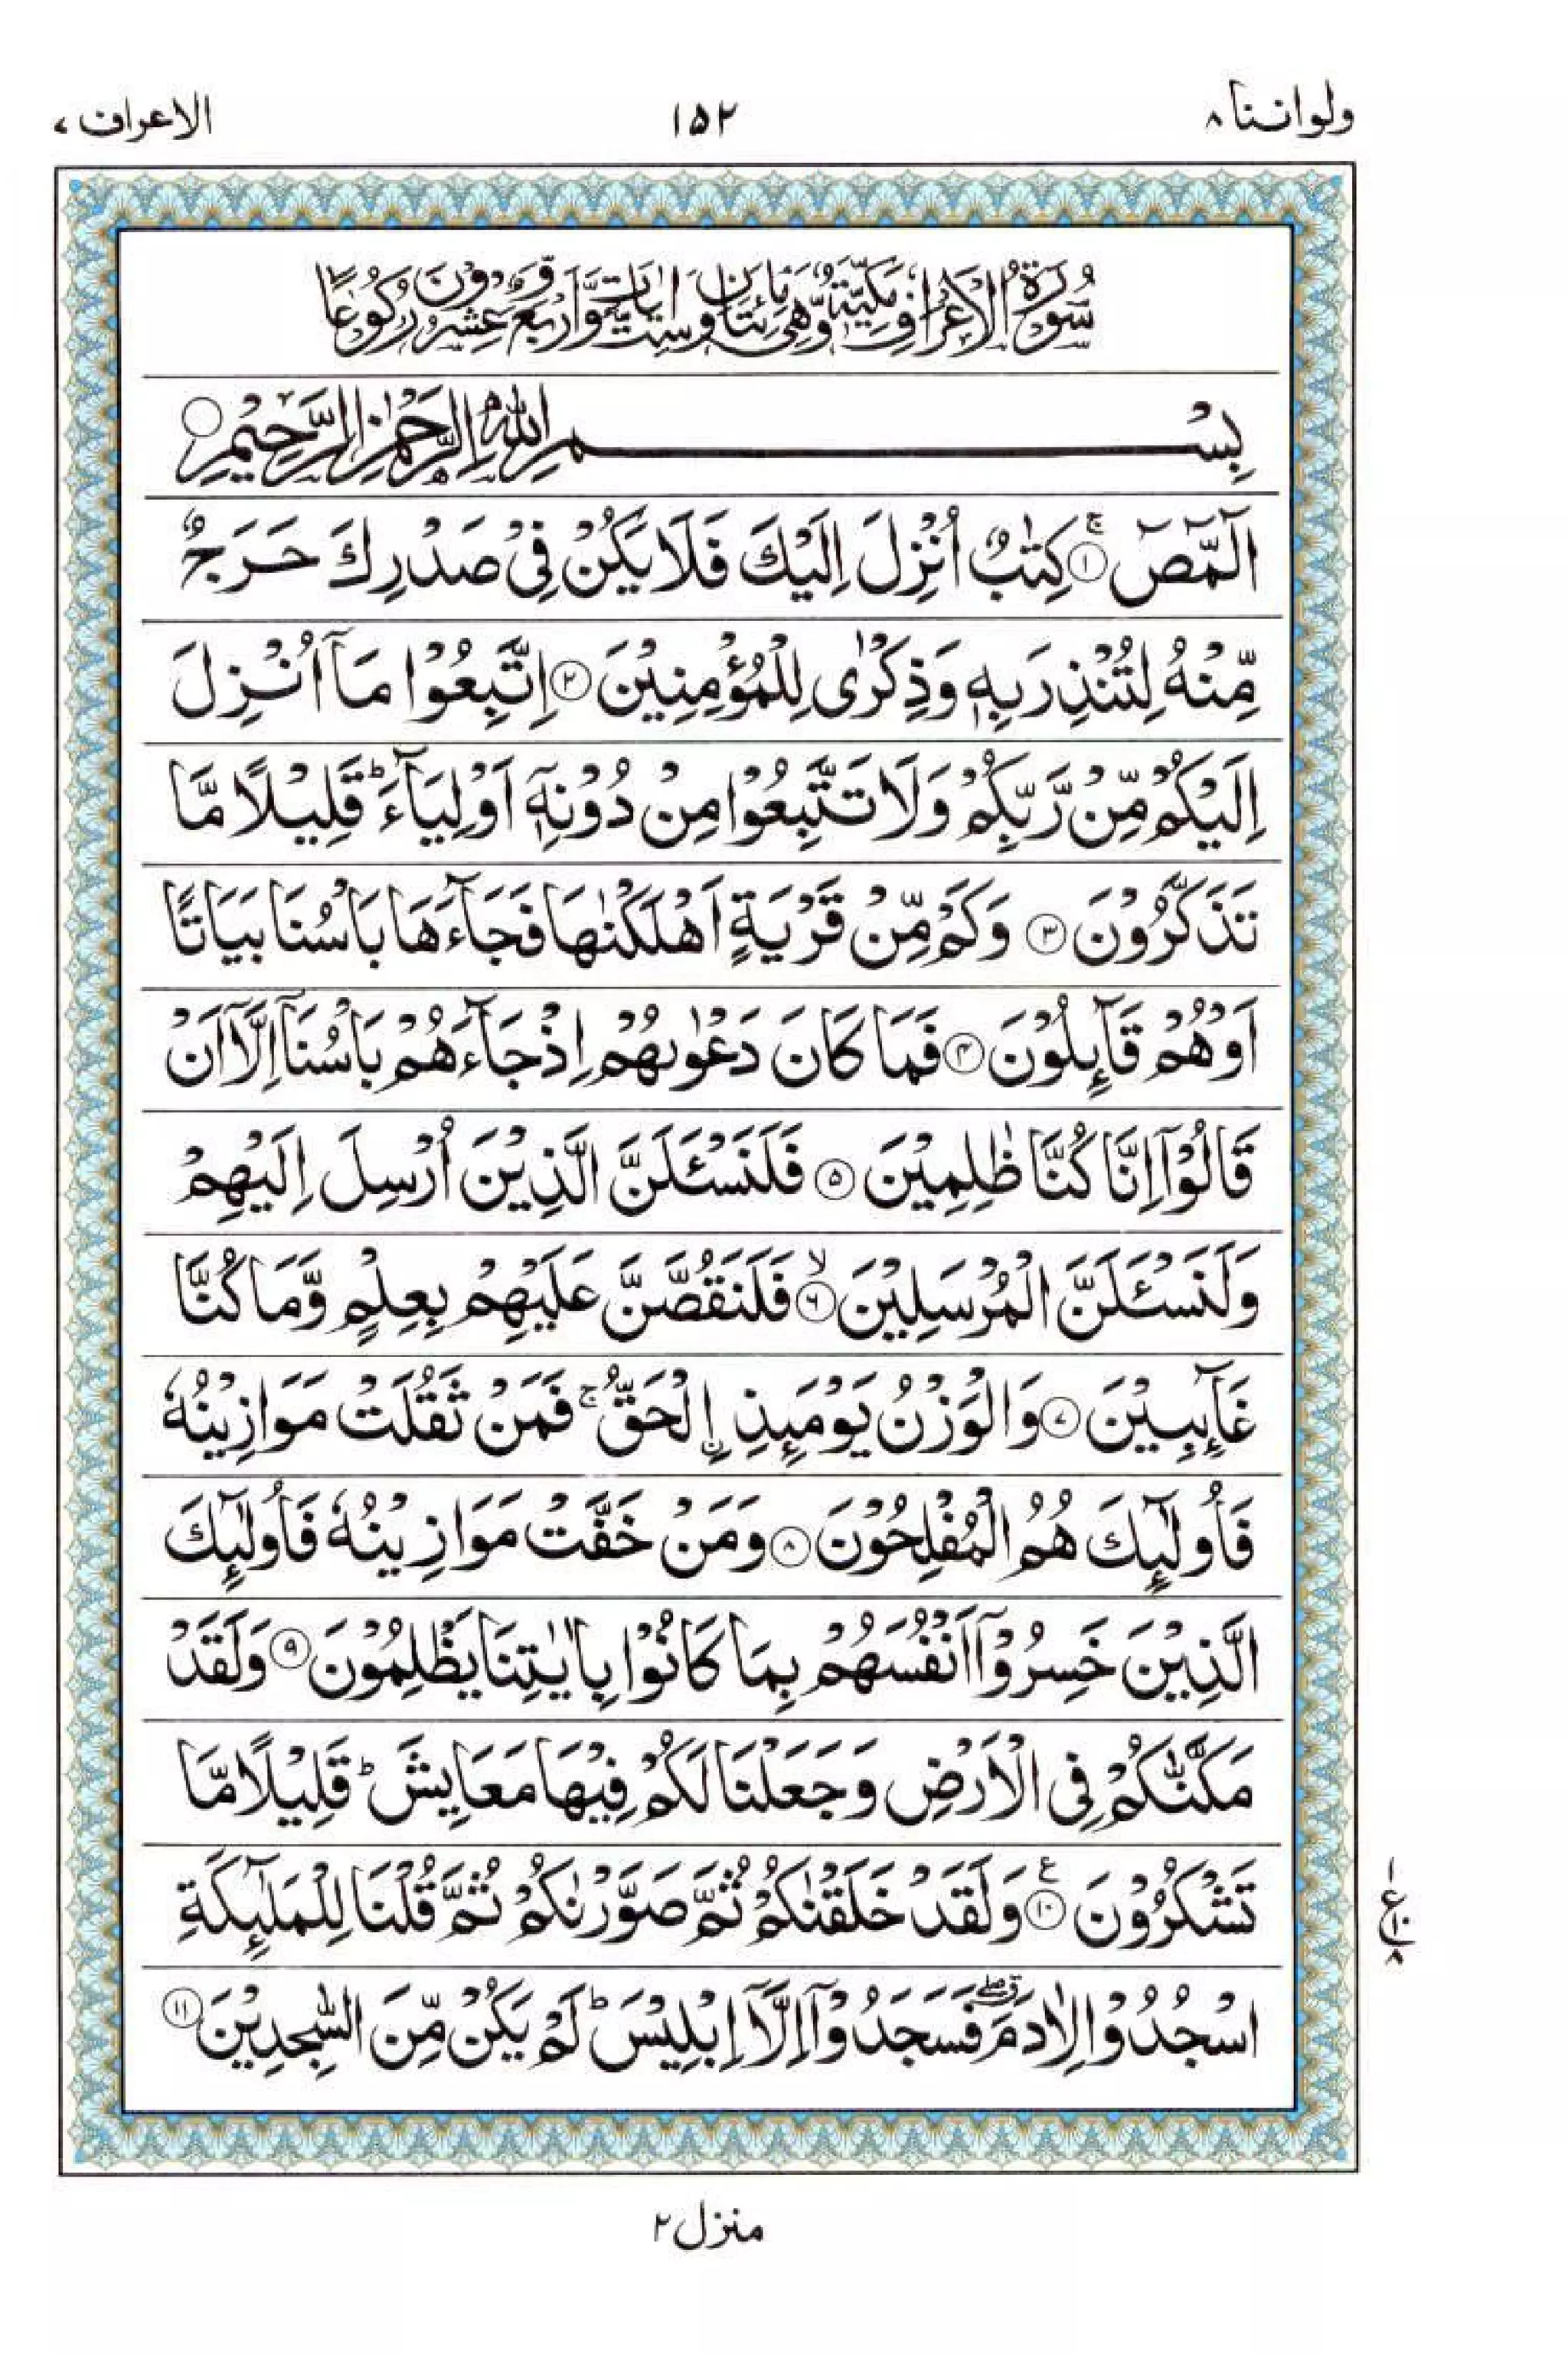 ولواننا ۸
۱۵۲
الاعراف ۷
سُوْرَةُ الْاَعْرَافِ مَكِّيَّةٌ وَّهِىَ مِائَتَانِ وَسِتُّ اٰيَاتٍ وَّاَرْبَعٌ وَّعِشْرُوْنَ رُكُوْعًا
بِسْمِ اللّٰهِ الرَّحْمٰنِ الرَّحِيْمِ ○
الٓمّٓصٓ ۚ﴿۱﴾ كِتٰبٌ اُنْزِلَ اِلَيْكَ فَلَا يَكُنْ فِىْ صَدْرِكَ حَرَجٌ
مِّنْهُ لِتُنْذِرَ بِهٖ وَذِكْرٰى لِلْمُؤْمِنِيْنَ ﴿۲﴾ اِتَّبِعُوْا مَاۤ اُنْزِلَ
اِلَيْكُمْ مِّنْ رَّبِّكُمْ وَلَا تَتَّبِعُوْا مِنْ دُوْنِهٖۤ اَوْلِيَآءَ ؕ قَلِيْلًا مَّا
تَذَكَّرُوْنَ ﴿۳﴾ وَكَمْ مِّنْ قَرْيَةٍ اَهْلَكْنٰهَا فَجَآءَهَا بَاْسُنَا بَيَاتًا
اَوْ هُمْ قَآئِلُوْنَ ﴿۴﴾ فَمَا كَانَ دَعْوٰىهُمْ اِذْ جَآءَهُمْ بَاْسُنَاۤ اِلَّاۤ اَنْ
قَالُوْۤا اِنَّا كُنَّا ظٰلِمِيْنَ ﴿۵﴾ فَلَنَسْـَٔلَنَّ الَّذِيْنَ اُرْسِلَ اِلَيْهِمْ
وَلَنَسْـَٔلَنَّ الْمُرْسَلِيْنَ ۙ﴿۶﴾ فَلَنَقُصَّنَّ عَلَيْهِمْ بِعِلْمٍ وَّمَا كُنَّا
غَآئِبِيْنَ ﴿۷﴾ وَالْوَزْنُ يَوْمَئِذِ ۣالْحَقُّ ۚ فَمَنْ ثَقُلَتْ مَوَازِيْنُهٗ
فَاُولٰٓئِكَ هُمُ الْمُفْلِحُوْنَ ﴿۸﴾ وَمَنْ خَفَّتْ مَوَازِيْنُهٗ فَاُولٰٓئِكَ
الَّذِيْنَ خَسِرُوْۤا اَنْفُسَهُمْ بِمَا كَانُوْا بِاٰيٰتِنَا يَظْلِمُوْنَ ﴿۹﴾ وَلَقَدْ
مَكَّنّٰكُمْ فِى الْاَرْضِ وَجَعَلْنَا لَكُمْ فِيْهَا مَعَايِشَ ؕ قَلِيْلًا مَّا
تَشْكُرُوْنَ ﴿۱۰﴾ ع وَلَقَدْ خَلَقْنٰكُمْ ثُمَّ صَوَّرْنٰكُمْ ثُمَّ قُلْنَا لِلْمَلٰٓئِكَةِ
۱
ع
۱۰
۸
اسْجُدُوْا لِاٰدَمَ ۖ ق فَسَجَدُوْۤا اِلَّاۤ اِبْلِيْسَ ؕ لَمْ يَكُنْ مِّنَ السّٰجِدِيْنَ ﴿۱۱﴾
منزل ۲